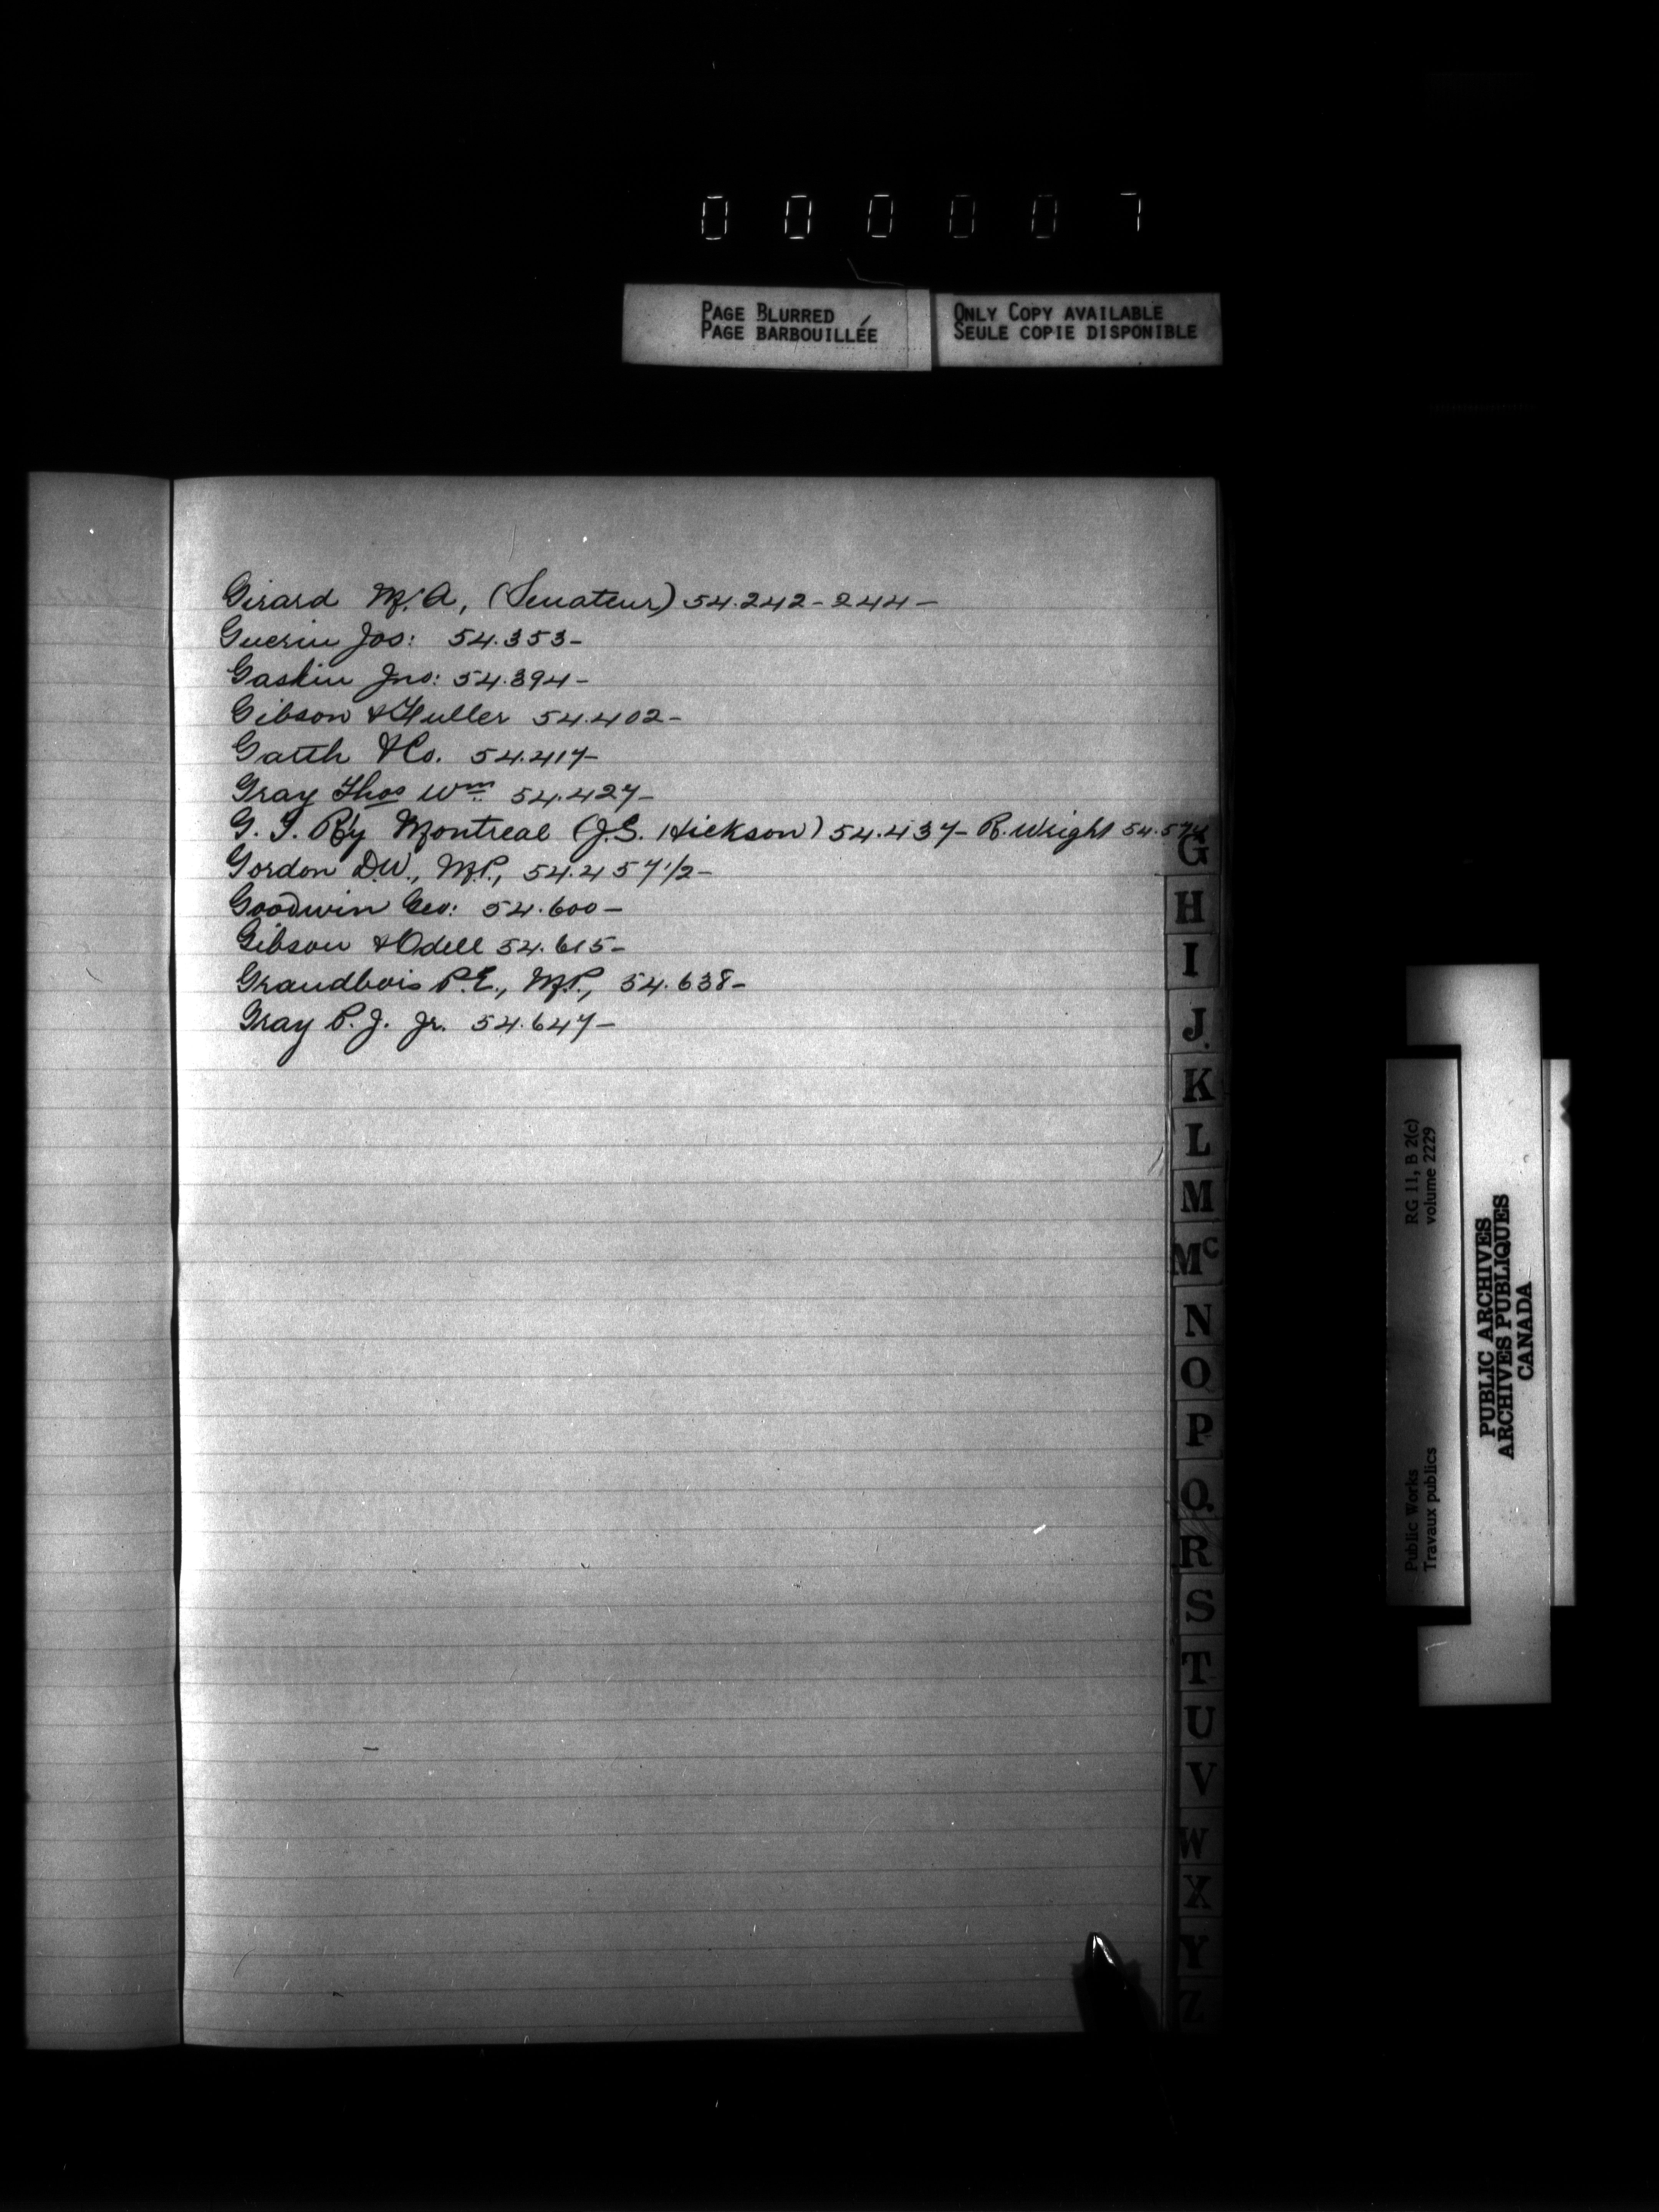 000007
PAGE BLURRED
PAGE BARBOUILLÉE
ONLY COPY AVAILABLE
SEULE COPIE DISPONIBLE
Girard M. A, (Senateur) 54.242-244-
Guerin Jos: 54.353-
Gaskin Jno: 54.394-
Gibson & Fuller 54.402-
Garth & Co. 54.417-
Gray Thos Wm 54.427-
G. T. R'y Montreal (J.S. Hickson) 54.437- R. Wright
Gordon D.W., M.P., 54.457 1/2-
Goodwin Geo: 54.600-
Gibson & Odell 54.615-
Grandbois P.E., M.P., 54.638-
Gray P. J. Jr. 54.647-
G
H
I
J.
K
L
M
Mc
N
O
P
Q
R
S
T
U
V
W
X
Y
Z
Public Works
Travaux publics
RG 11, B 2(c)
volume 2229
PUBLIC ARCHIVES
ARCHIVES PUBLIQUES
CANADA